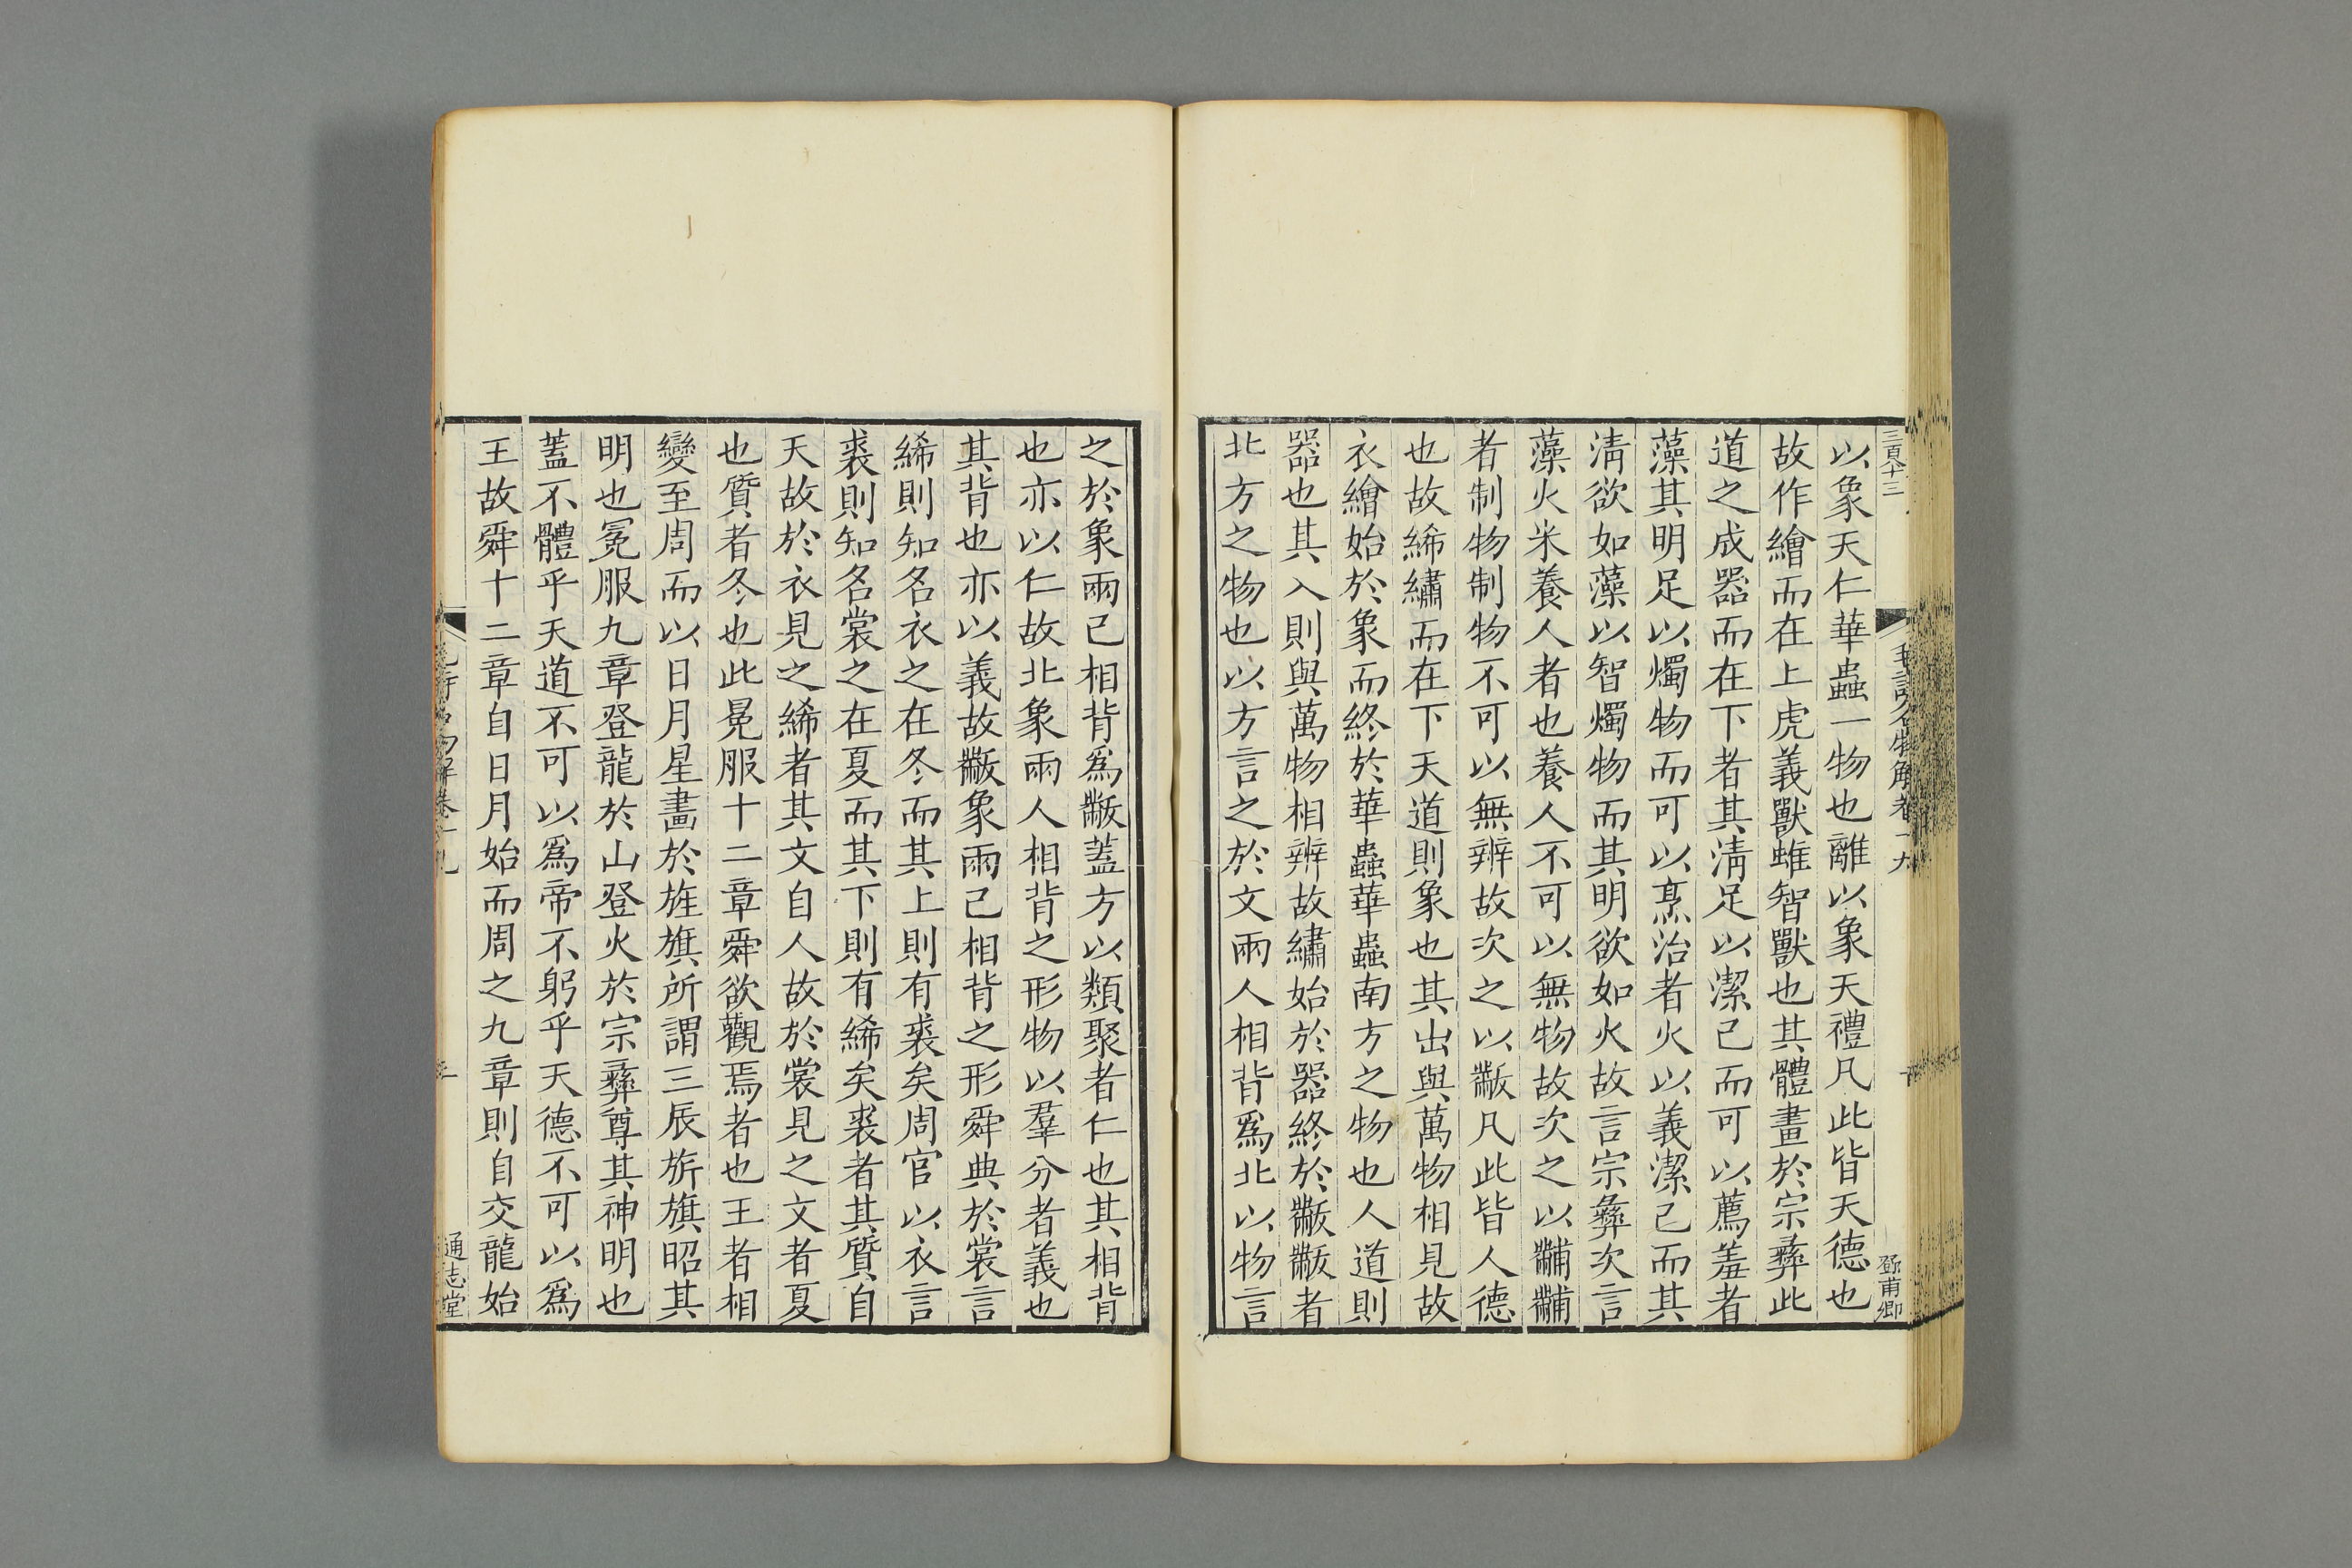 以象天仁華蟲一物也離以象天禮凡此皆天德也
故作繪而在上虎義獸蜼智獸也其體畫於宗彝此
道之成器而在下者其清足以潔己而可以薦羞者
藻其明足以燭物而可以烹治者火以義潔己而其
清欲如藻以智燭物而其明欲如火故言宗彝次言
藻火米養人者也養人不可以無物故次之以黼黼
者制物制物不可以無辨故次之以黻凡此皆人德
也故絺繡而在下天道則象也其出與萬物相見故
衣繪始於象而終於華蟲華蟲南方之物也人道則
器也其入則與萬物相辨故繡始於器終於黻黻者
北方之物也以方言之於文兩人相背爲北以物言
之於象兩己相背爲黻蓋方以類聚者仁也其相背
也亦以仁故北象兩人相背之形物以羣分者義也
其背也亦以義故黻象兩己相背之形舜典於裳言
絺則知名衣之在冬而其上則有裘矣周官以衣言
裘則知名裳之在夏而其下則有絺矣裘者其質自
天故於衣見之絺者其文自人故於裳見之文者夏
也質者冬也此冕服十二章舜欲觀焉者也王者相
變至周而以日月星畫於旌旗所謂三辰旂旗昭其
明也冕服九章登龍於山登火於宗彝尊其神明也
蓋不體乎天道不可以爲帝不躬乎天德不可以爲
王故舜十二章自日月始而周之九章則自交龍始
毛詩名物解卷十九
鄧甫卿
通志堂